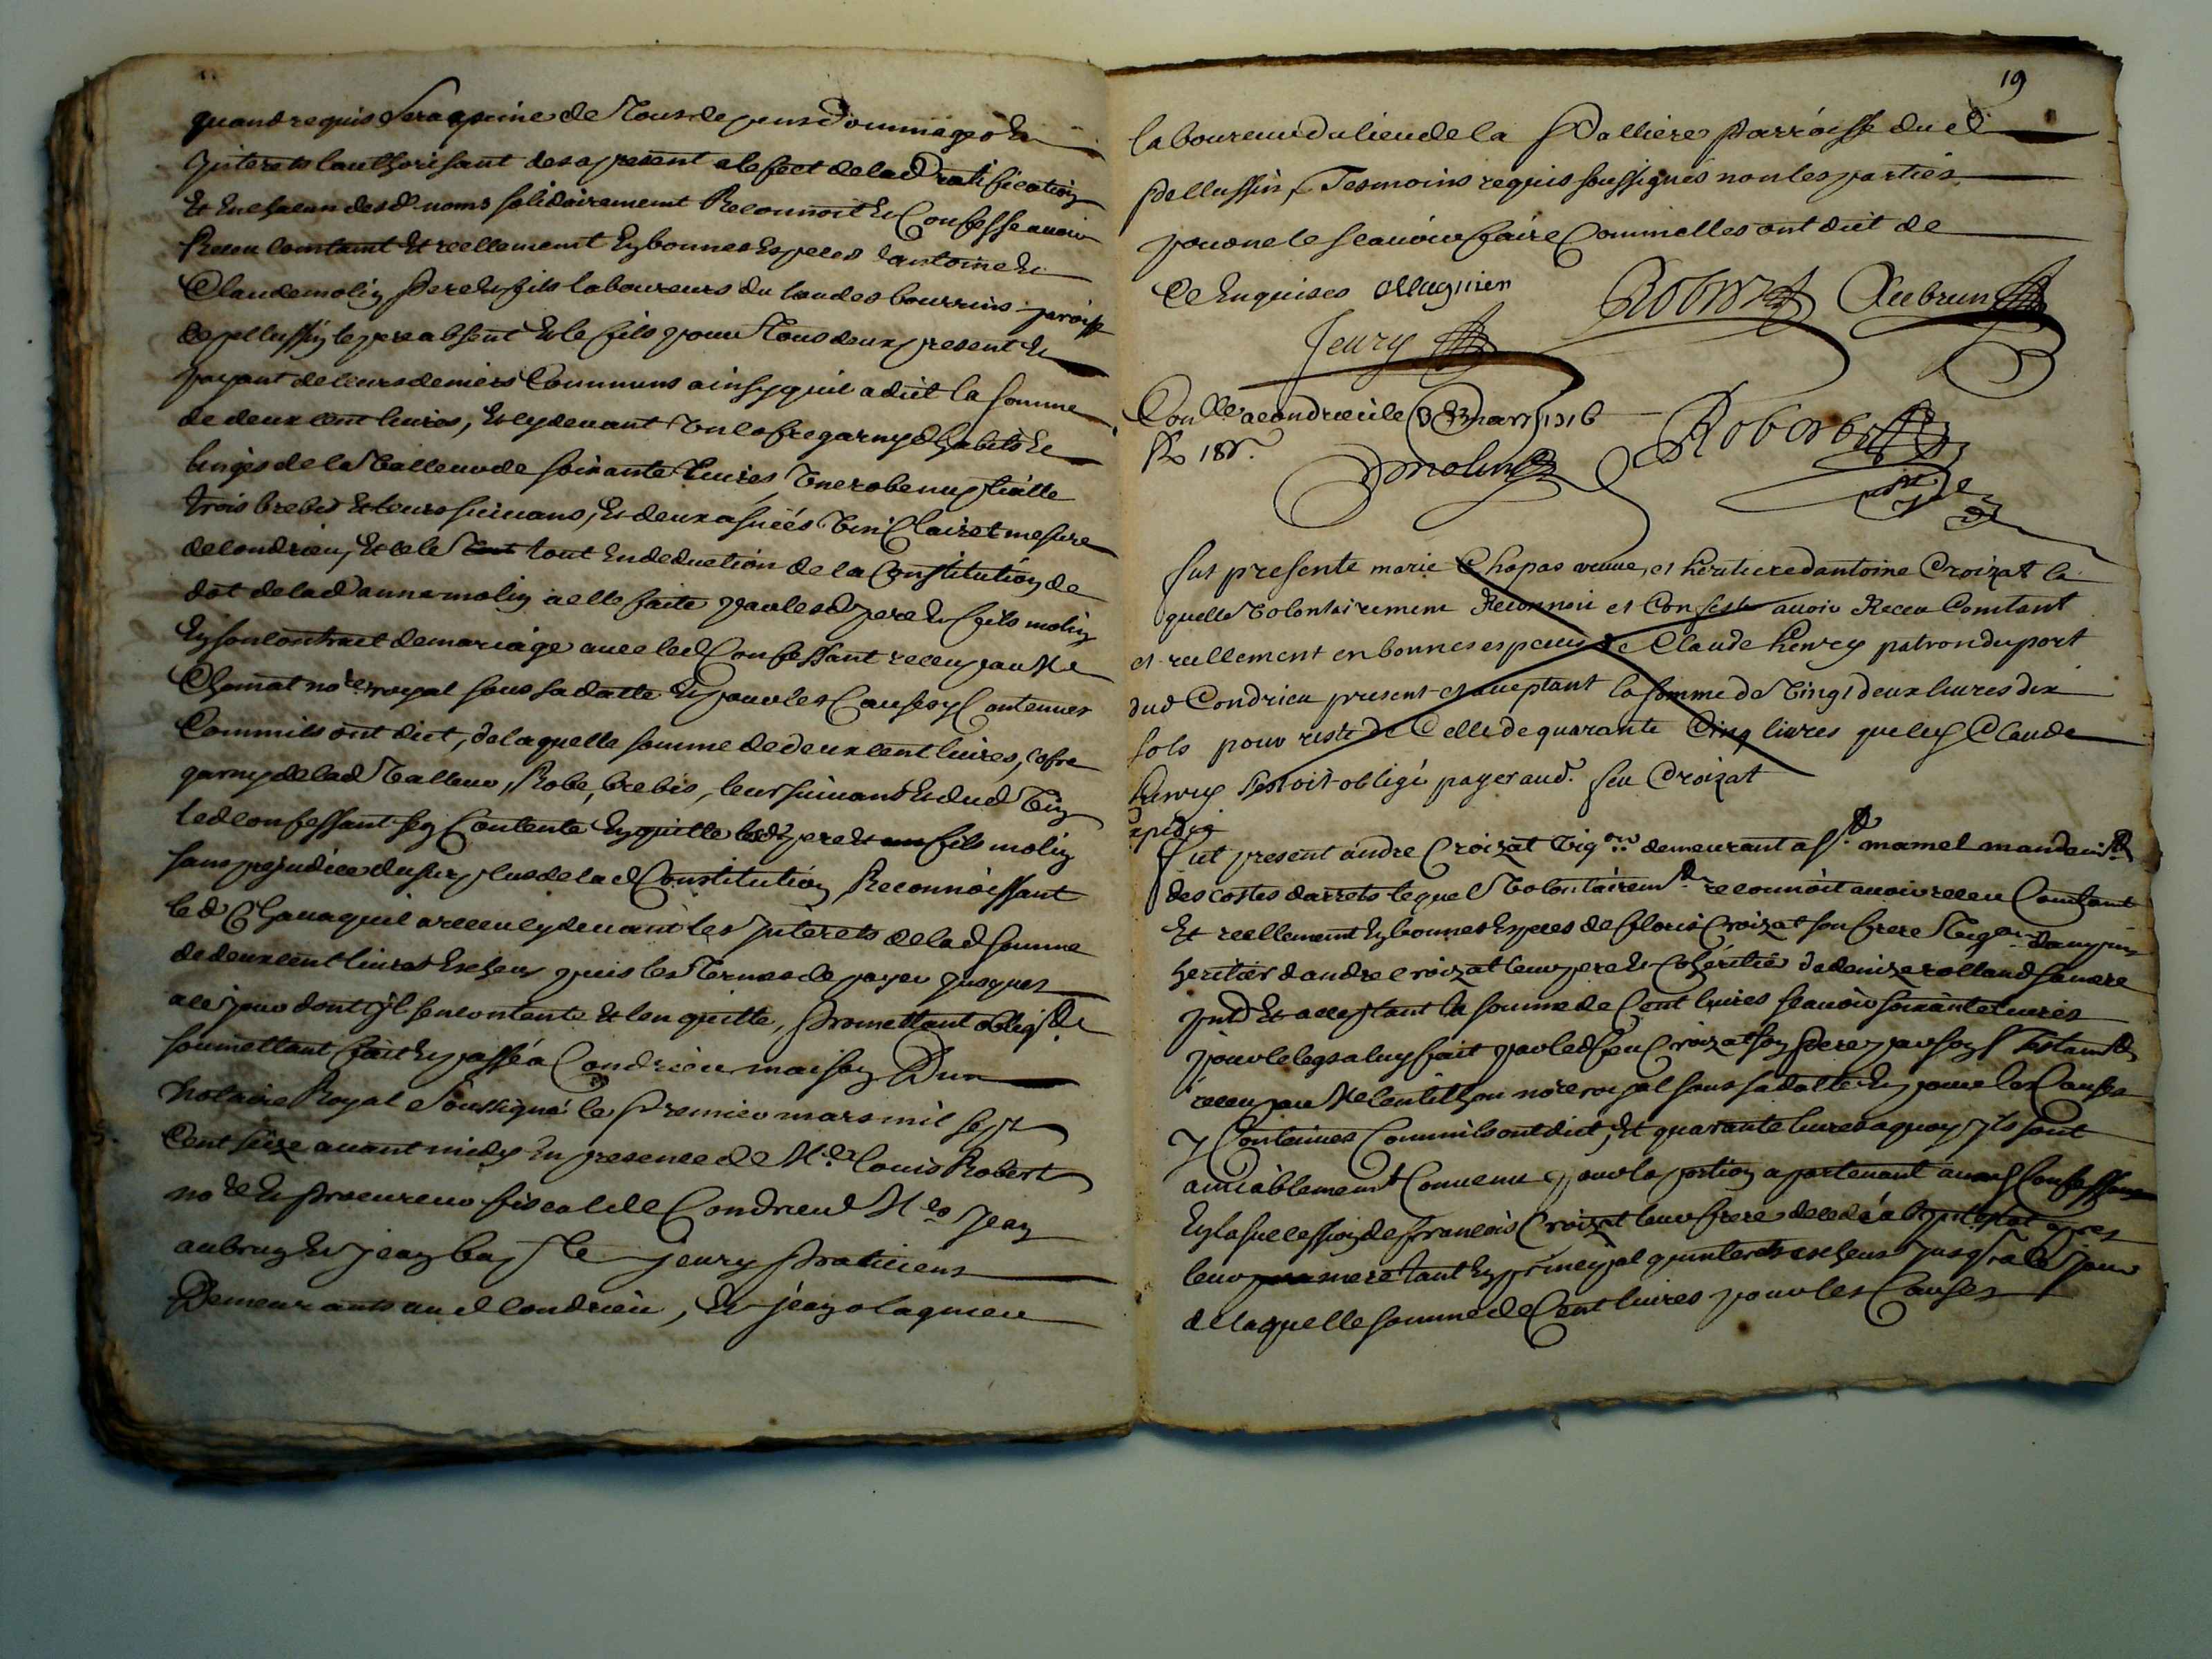 quand requis sera a peine de tous depens dommages et
interets lauthorisant des a present a lefect de lad ratification
Et en chacun desd noms solidairement Reconnoit et Confesse avoir
Receu comtant et reellement en bonnes especes dantoine et
Claude molin pere et fils laboureurs du lieu des bourrins paroisse
de pellussin le pere absent et le fils pour tous deux present et
payant de leurs deniers Communs ainsy quil a dict la somme
de deux cent livres, et cy devant un cofre garny dhabits et
linges de la valleur de soixante livres, Une robe nuptialle
trois brebis et leurs suivans, et deux asnées vin Clairet mesure
de condrieu, et ce le tout en deduction de la Constitution de
dot de lad anne molin a elle faite par lesd pere et fils molin
en son contract de mariage avec led Confessant receu par Me
Chomat nore royal sous sa datte et pour les Causes y Contenues
Comm ils ont dict, de laquelle somme de deux cent livres, cofre
garny de lad valleur, Robe, brebis, leur suivans et dud vin
led confessant sen Contente en quitte lesd pere et fils molin
sans prejudice du surplus de lad Constitution, Reconnoissant
led quil a receu cy devant les Interets de lad somme
de deux cent livres escheus puis les termes de payer jusques
a ce jour dont il sen contente et len quitte, promettant oblig.t
soumettant fait et passé a Condrieu maison Du
notaire Royal Soussigné le premier mars mil sept
Cent seize avant midy en presence de Me louis Robert
nore et procureur fiscal de Condrieu Mes Jean
aubrun et jean bap.te jeury praticiens
Demeurants aud Condrieu, et jean olagnieu
19
laboureur du lieu de la Valliere parroisse dud
pellussin, Tesmoins requis soussignés non les parties
pour ne le scavoir faire Comm elles ont dict de
Ce Enquises ollagnier Robert Aubrun
Jeury
Conllé a condrieu le 3 mars 1716
R 18s. Dmolin Robert
nore
fut presente marie Chapas veuve, et heritiere dantoine Croizat la
quelle volontairement Reconnoit et Confesse avoir Receu Comtant
et reellement en bonnes especes de Claude henry patron du port
dud Condrieu present et acceptant la somme de vingt deux livres dix
sols pour reste de Celle de quarante Cinq livres que led Claude
henry sestoit obligé payer aud. feu Croizat
expédié
fut present andre Croizat vig.on demeurant a St. mamel mandem.t
des costes darrets lequel volontairem.t reconnoit avoir receu Comtant
Et reellement en bonnes especes de floris Croizat son frere vig.on
heritier dandre croizat leur pere et cohéritier de denize rolland sa mere
pnt Et acceptant la somme de Cent livres scavoir soixante livres
pour le legs a luy fait par led feu Croizat son pere par son Testam.t
receu par Me lentillon nore royal sous sa datte et pour les Causes
y Contenues Comm ils ont dict, Et quarante livres a quoy ils sont
amiablement Convenus pour la portion apartenant aud Confessant
en la succession de francois Croizat leur frere decedé ab intestat apres
leur mere tant en principal quinterets escheus jusqu a ce jour
de laquelle somme de Cent livres pour les Causes